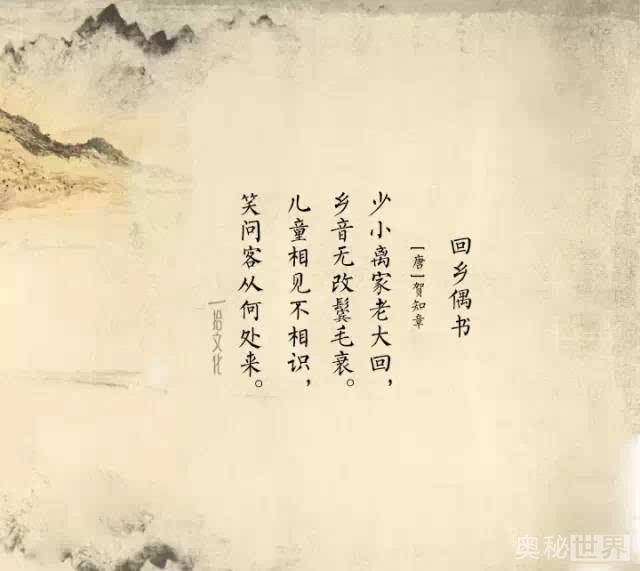 回乡偶书
[唐]贺知章
少小离家老大回，
乡音无改鬓毛衰。
儿童相见不相识，
笑问客从何处来。
拾文化
奥秘世界